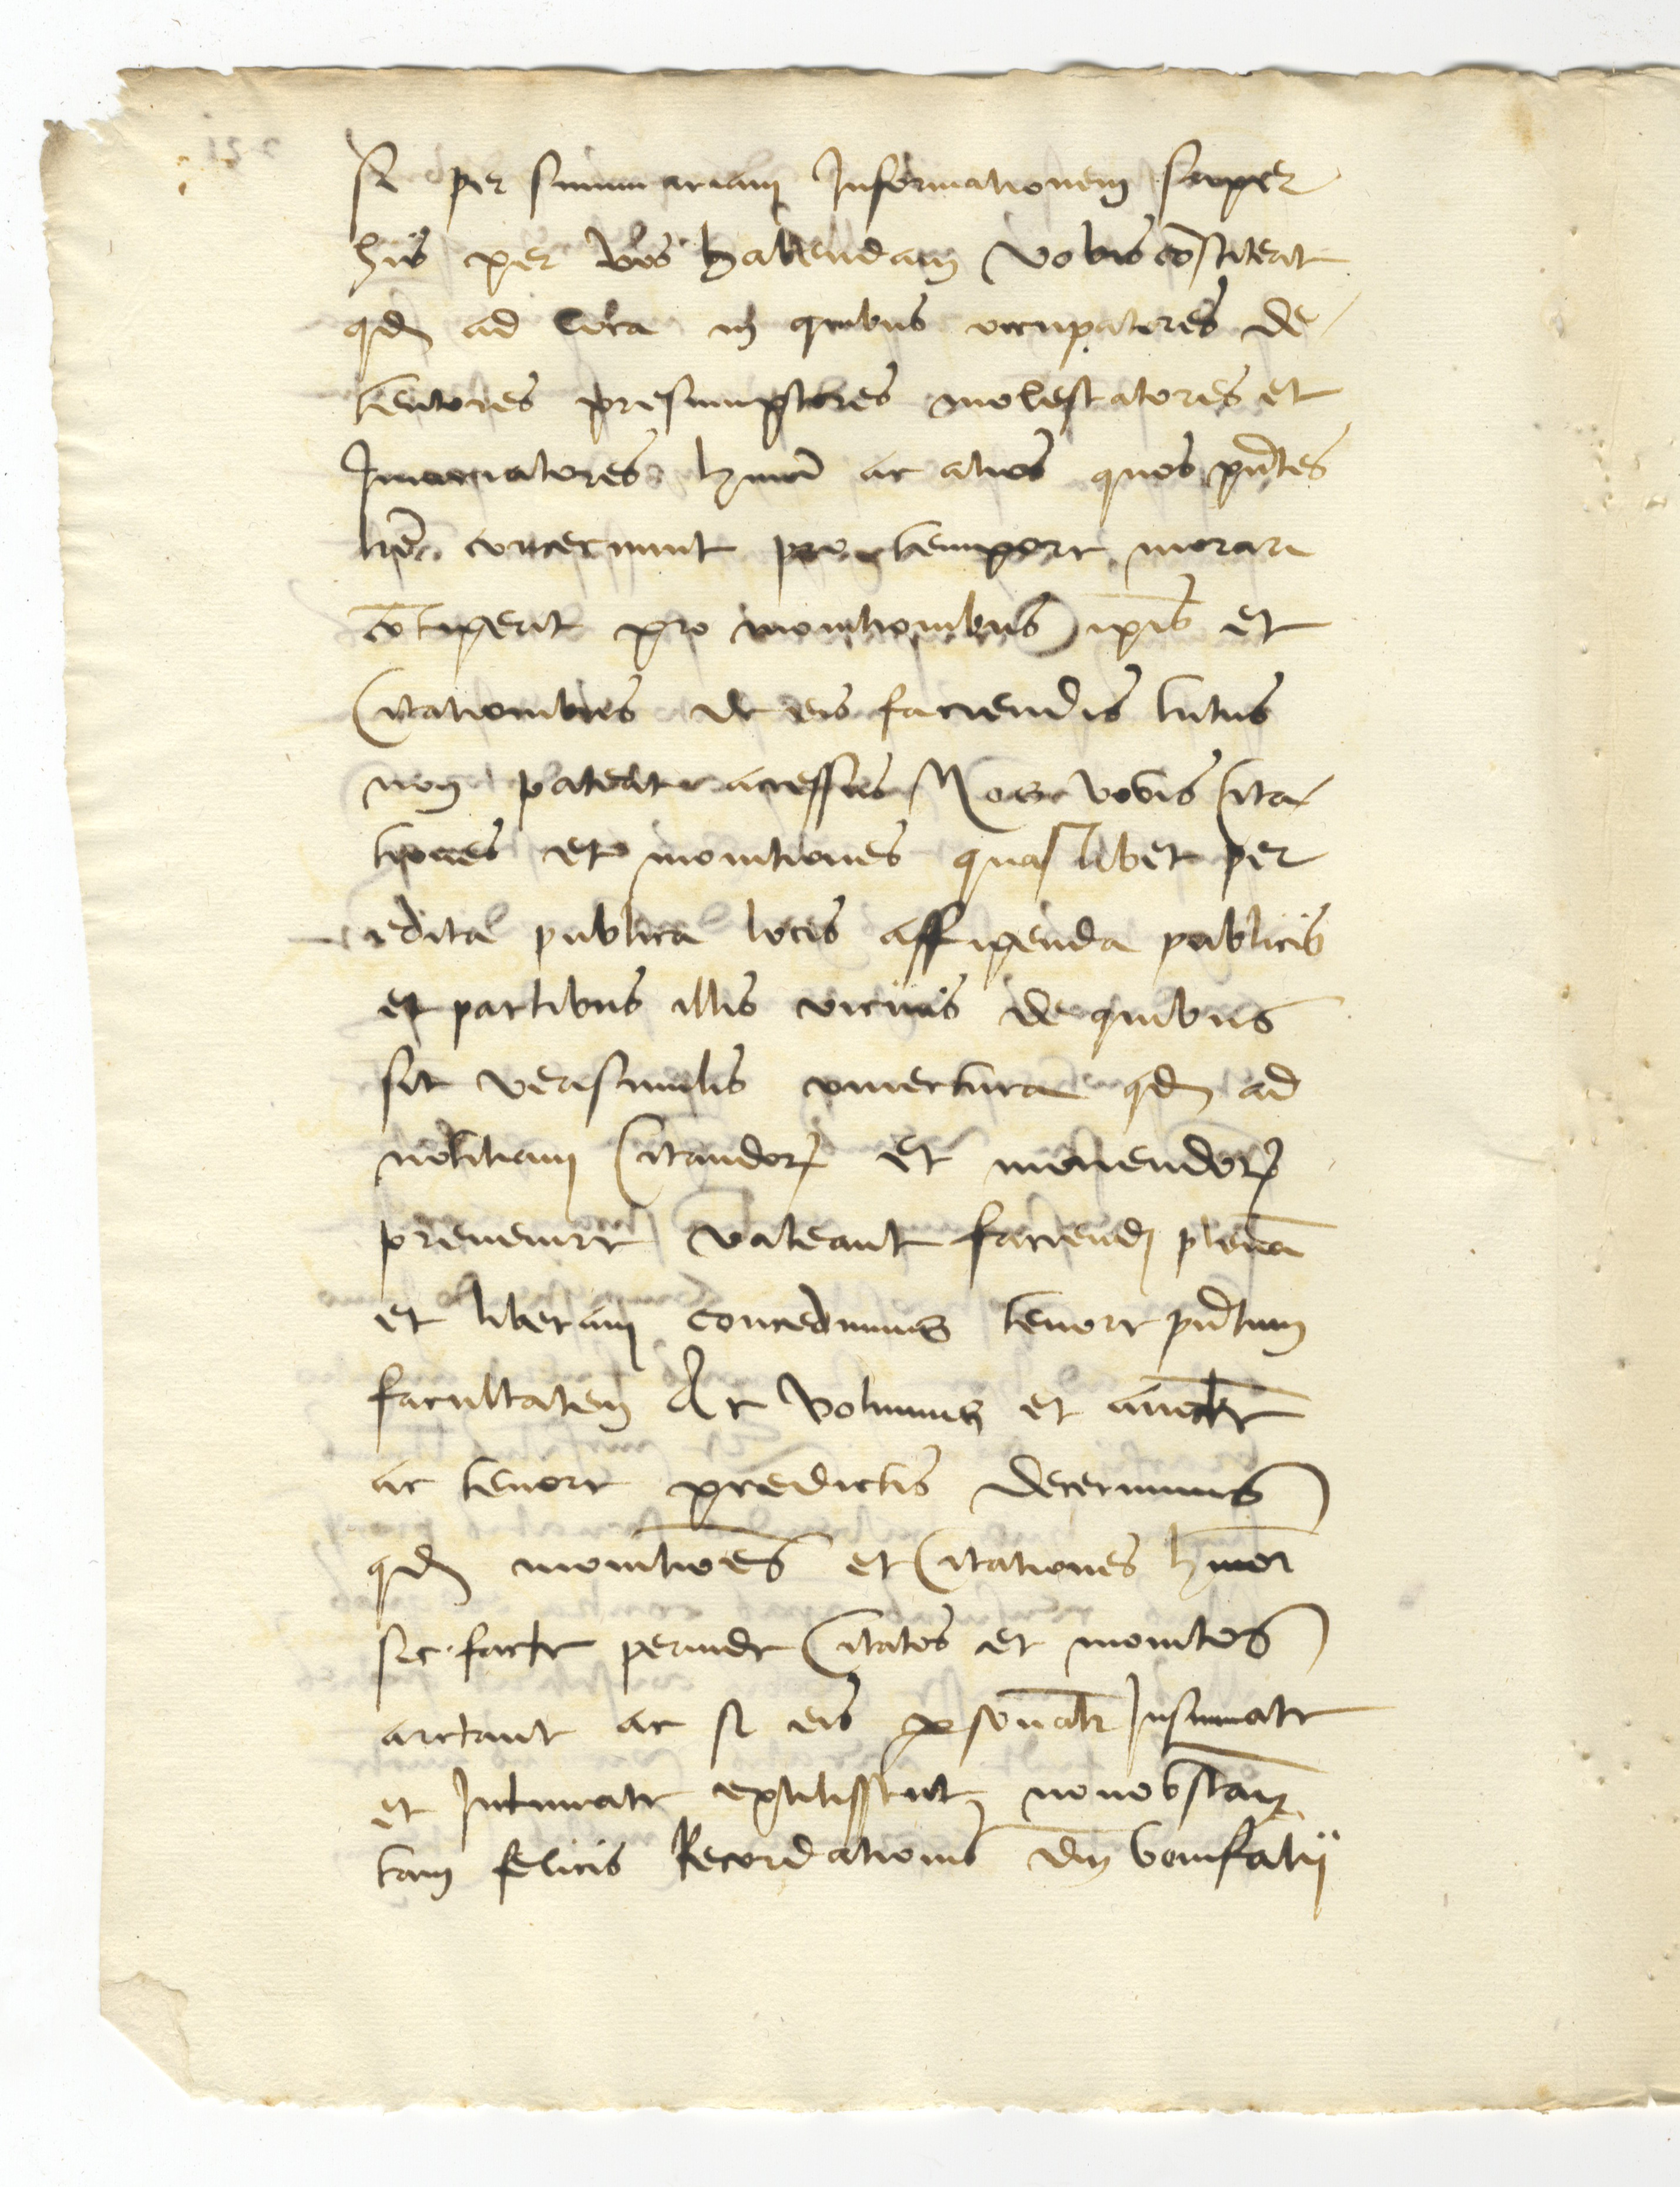 Si per summariam Informationem super
his per vos habendam vobis cõstiterit
qd ad loca in quibus occupatores de
tentores presumptores molestatores et
Iniuriatores hmoi ac alios quos pñtes
lrẽ concernunt pro tempore morari
cõtigerit pro monitionibus ip̃is et
Citationibus de eis faciendis tutus
non pateat accessus Nos vobis Cita
tiones et monitiones quaslibet per
edicta publica locis affigenda publicis
et partibus illis vicinis de quibus
sit verisimilis coniectura qd ad
notitiam Citandorꝝ et monendorꝝ
prevenire valeant faciendj plenã
et liberam concedimus tenore pñtium
facultatem Ac volumus et aucte
ac tenore predictis decernimus
qd monitiões et Citationes hmoi
sic facte perinde Citatos et monitos
arctant ac si eis ꝑsonalr Insinuate
et Intimate extitissent nonobstan
tam felicis Recordationis dñi bonifatij